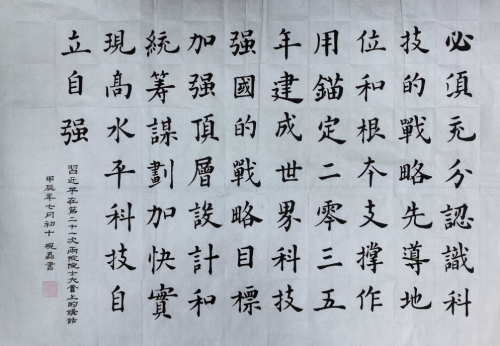 必須充分認識科
技的戰略先導地
位和根本支撐作
用錨定二零三五
年建成世界科技
强國的戰略目標
加强頂層設計和
統籌謀劃加快實
現高水平科技自
立自强
習近平在第二十一次兩院院士大會上的講話
甲辰年七月初十 書